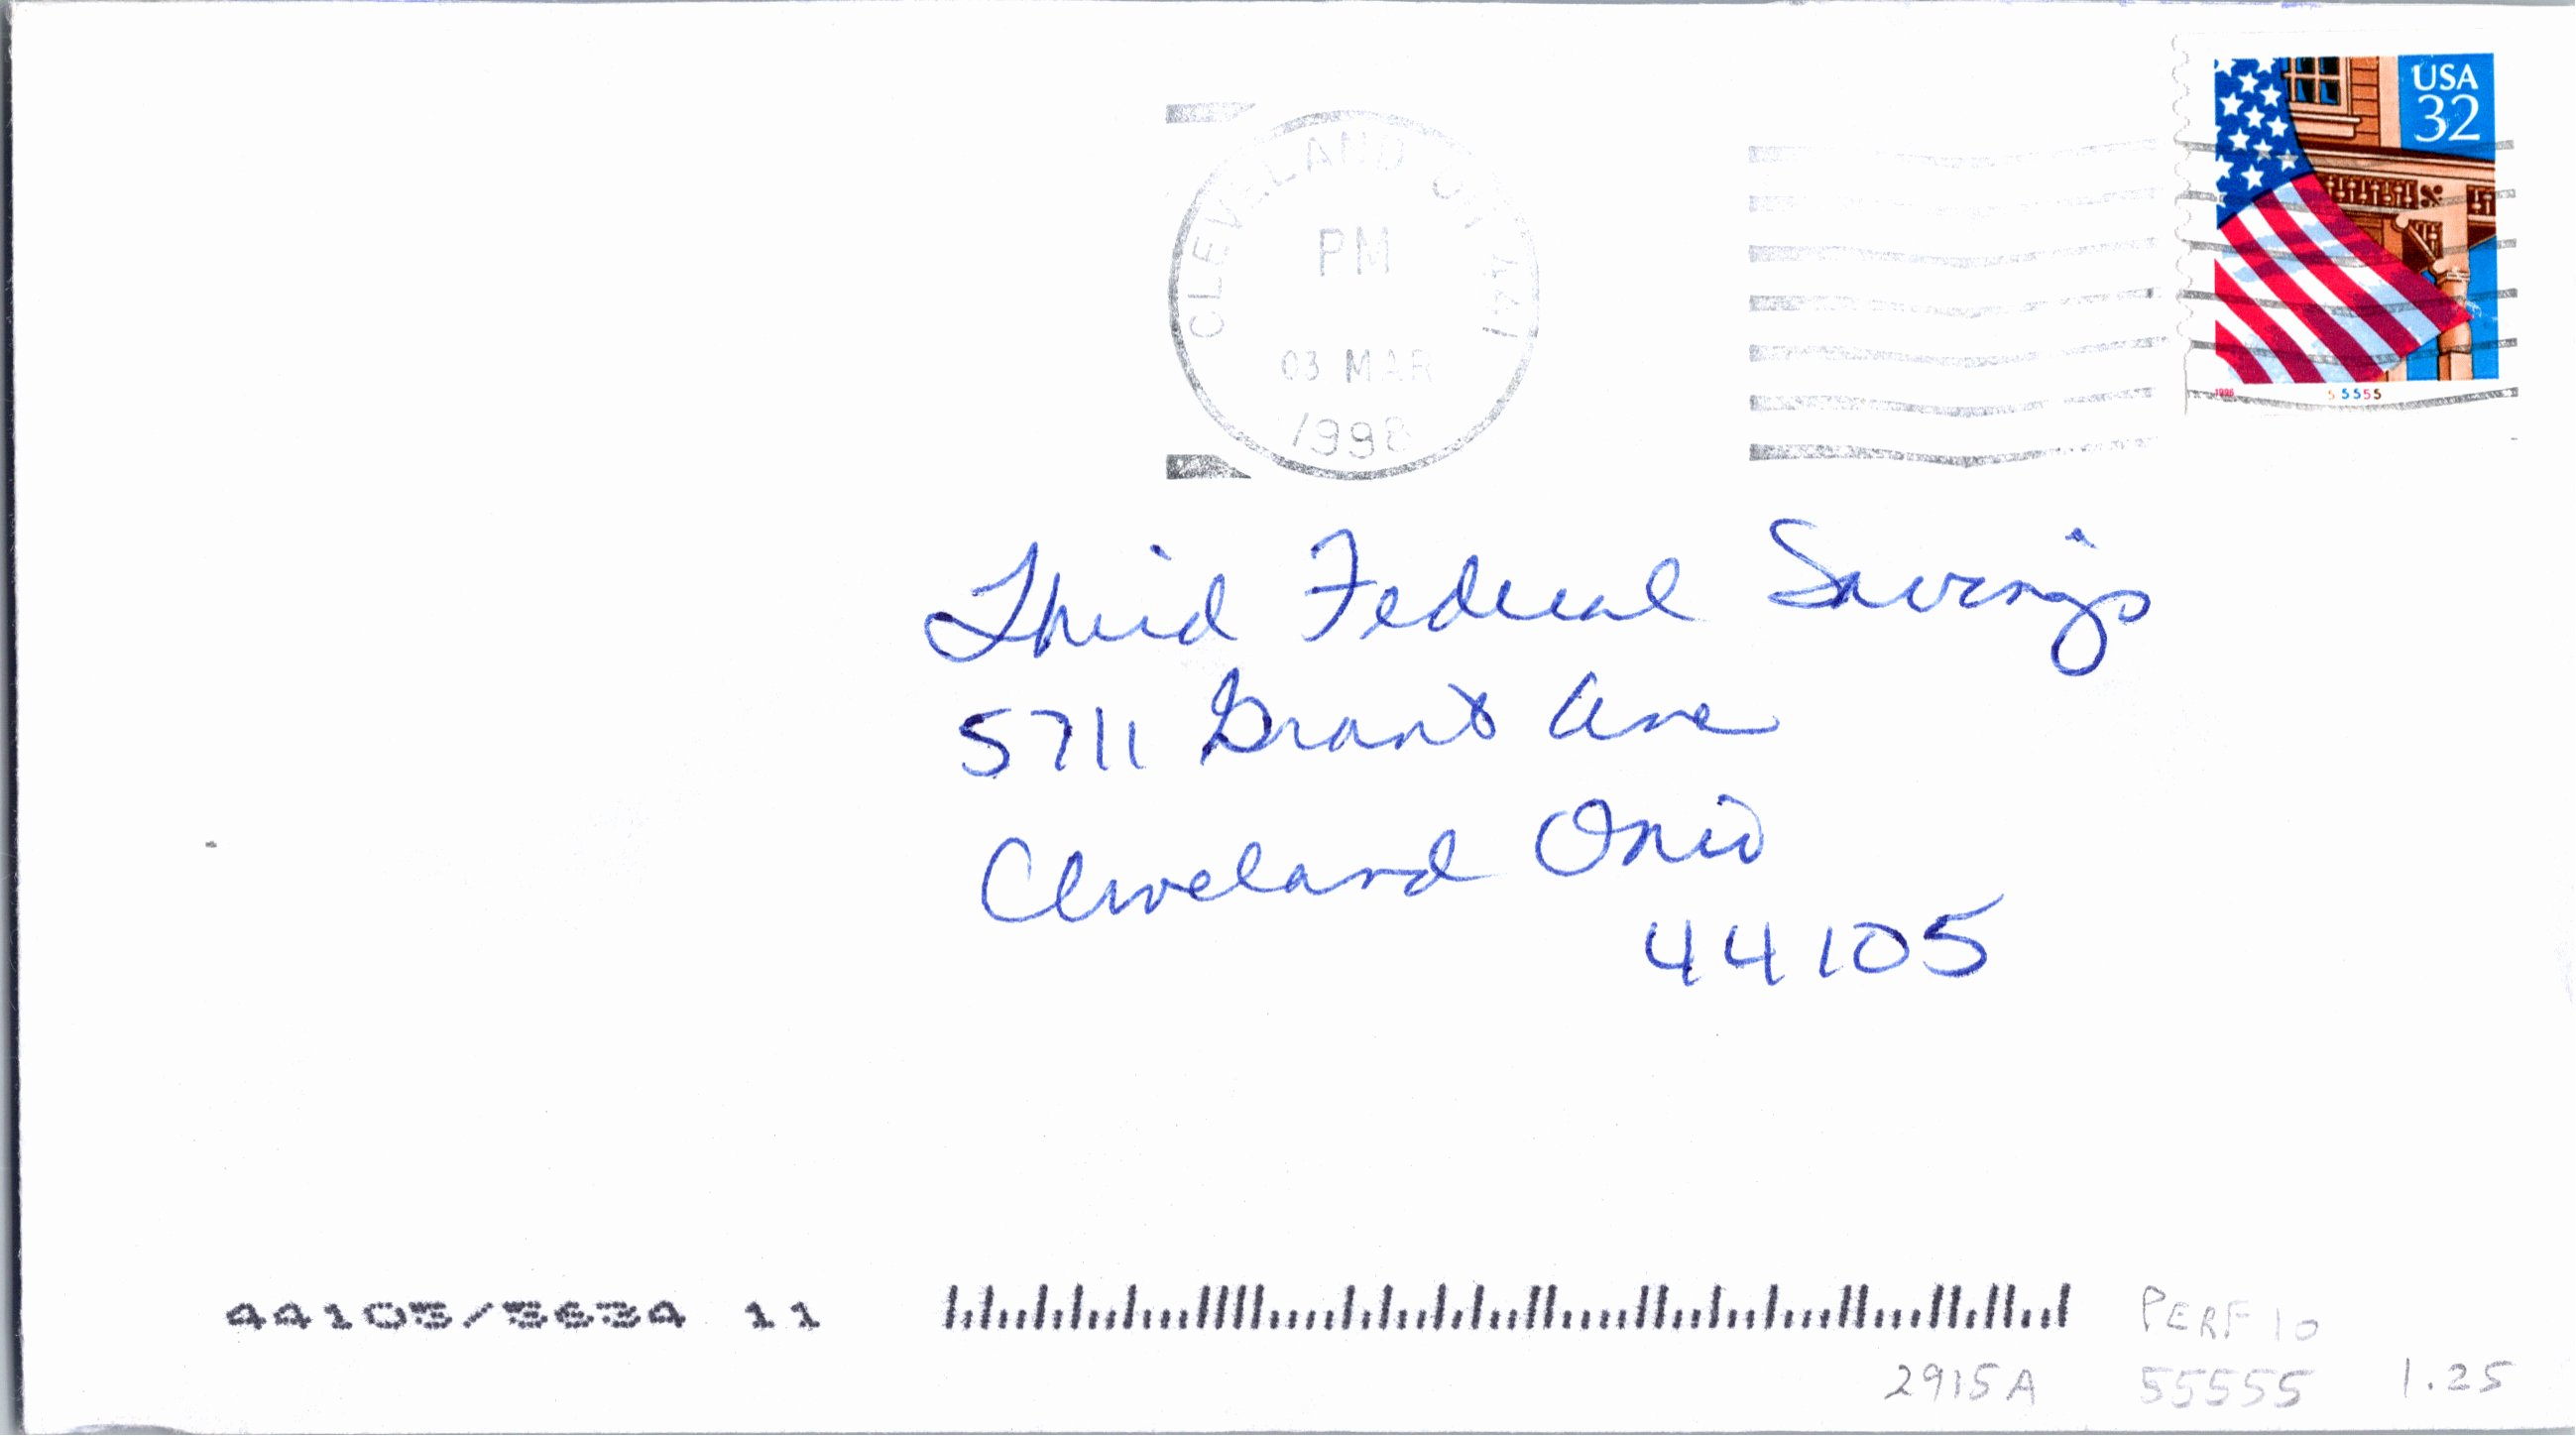 USA
32
CLEVELAND OH 441
PM
03 MAR
1998
1996 55555
Third Federal Savings
5711 Grant Ave
Cleveland Ohio
44105
44105/5634 11
PERF 10
2915A 55555 1.25